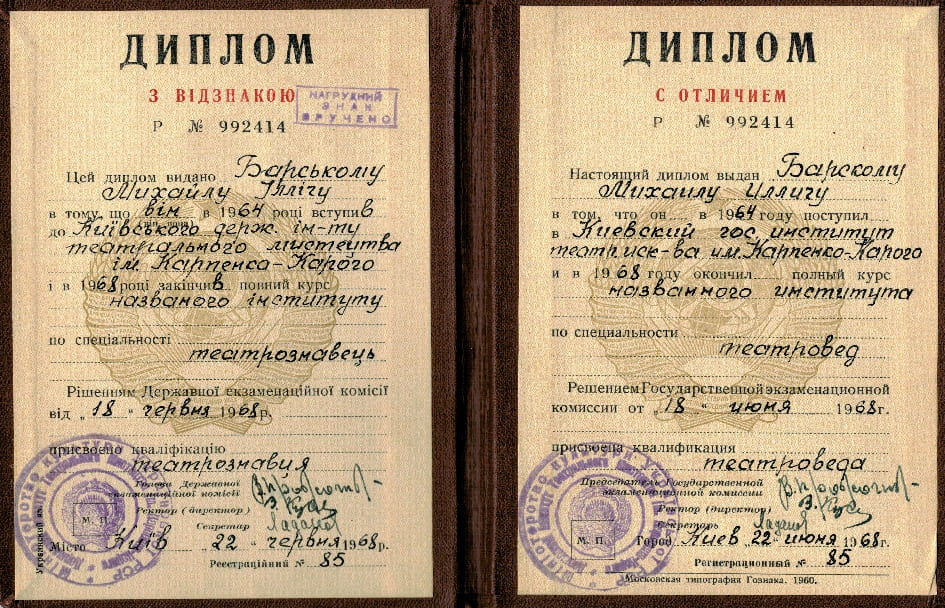 ДИПЛОМ
З ВІДЗНАКОЮ
НАГРУДНИЙ
ЗНАК
ВРУЧЕНО
Р № 992414
Цей диплом видано Барському
Михайлу Іллічу
в тому, що він в 1964 році вступив
до Київського держ. ін-ту
театрального мистецтва
ім. Карпенка-Карого
і в 1968 році закінчив повний курс
названого інституту
по спеціальності
театрознавець
Рішенням Державної екзаменаційної комісії
від „18“ червня 1968 р.
присвоєно кваліфікацію
театрознавця
Голова Державної
екзаменаційної комісії
Ректор (директор)
Секретар
М. П.
Місто Київ „22“ червня 1968 р.
Реєстраційний № 85
ДИПЛОМ
С ОТЛИЧИЕМ
Р № 992414
Настоящий диплом выдан Барскому
Михаилу Илличу
в том, что он в 1964 году поступил
в Киевский гос. институт
театр. иск-ва им. Карпенко-Карого
и в 1968 году окончил полный курс
названного института
по специальности
театровед
Решением Государственной экзаменационной
комиссии от „18“ июня 1968 г.
присвоена квалификация
театроведа
Председатель Государственной
экзаменационной комиссии
Ректор (директор)
Секретарь
М. П.
Город Киев „22“ июня 1968 г.
Регистрационный № 85
Московская типография Гознака. 1960.